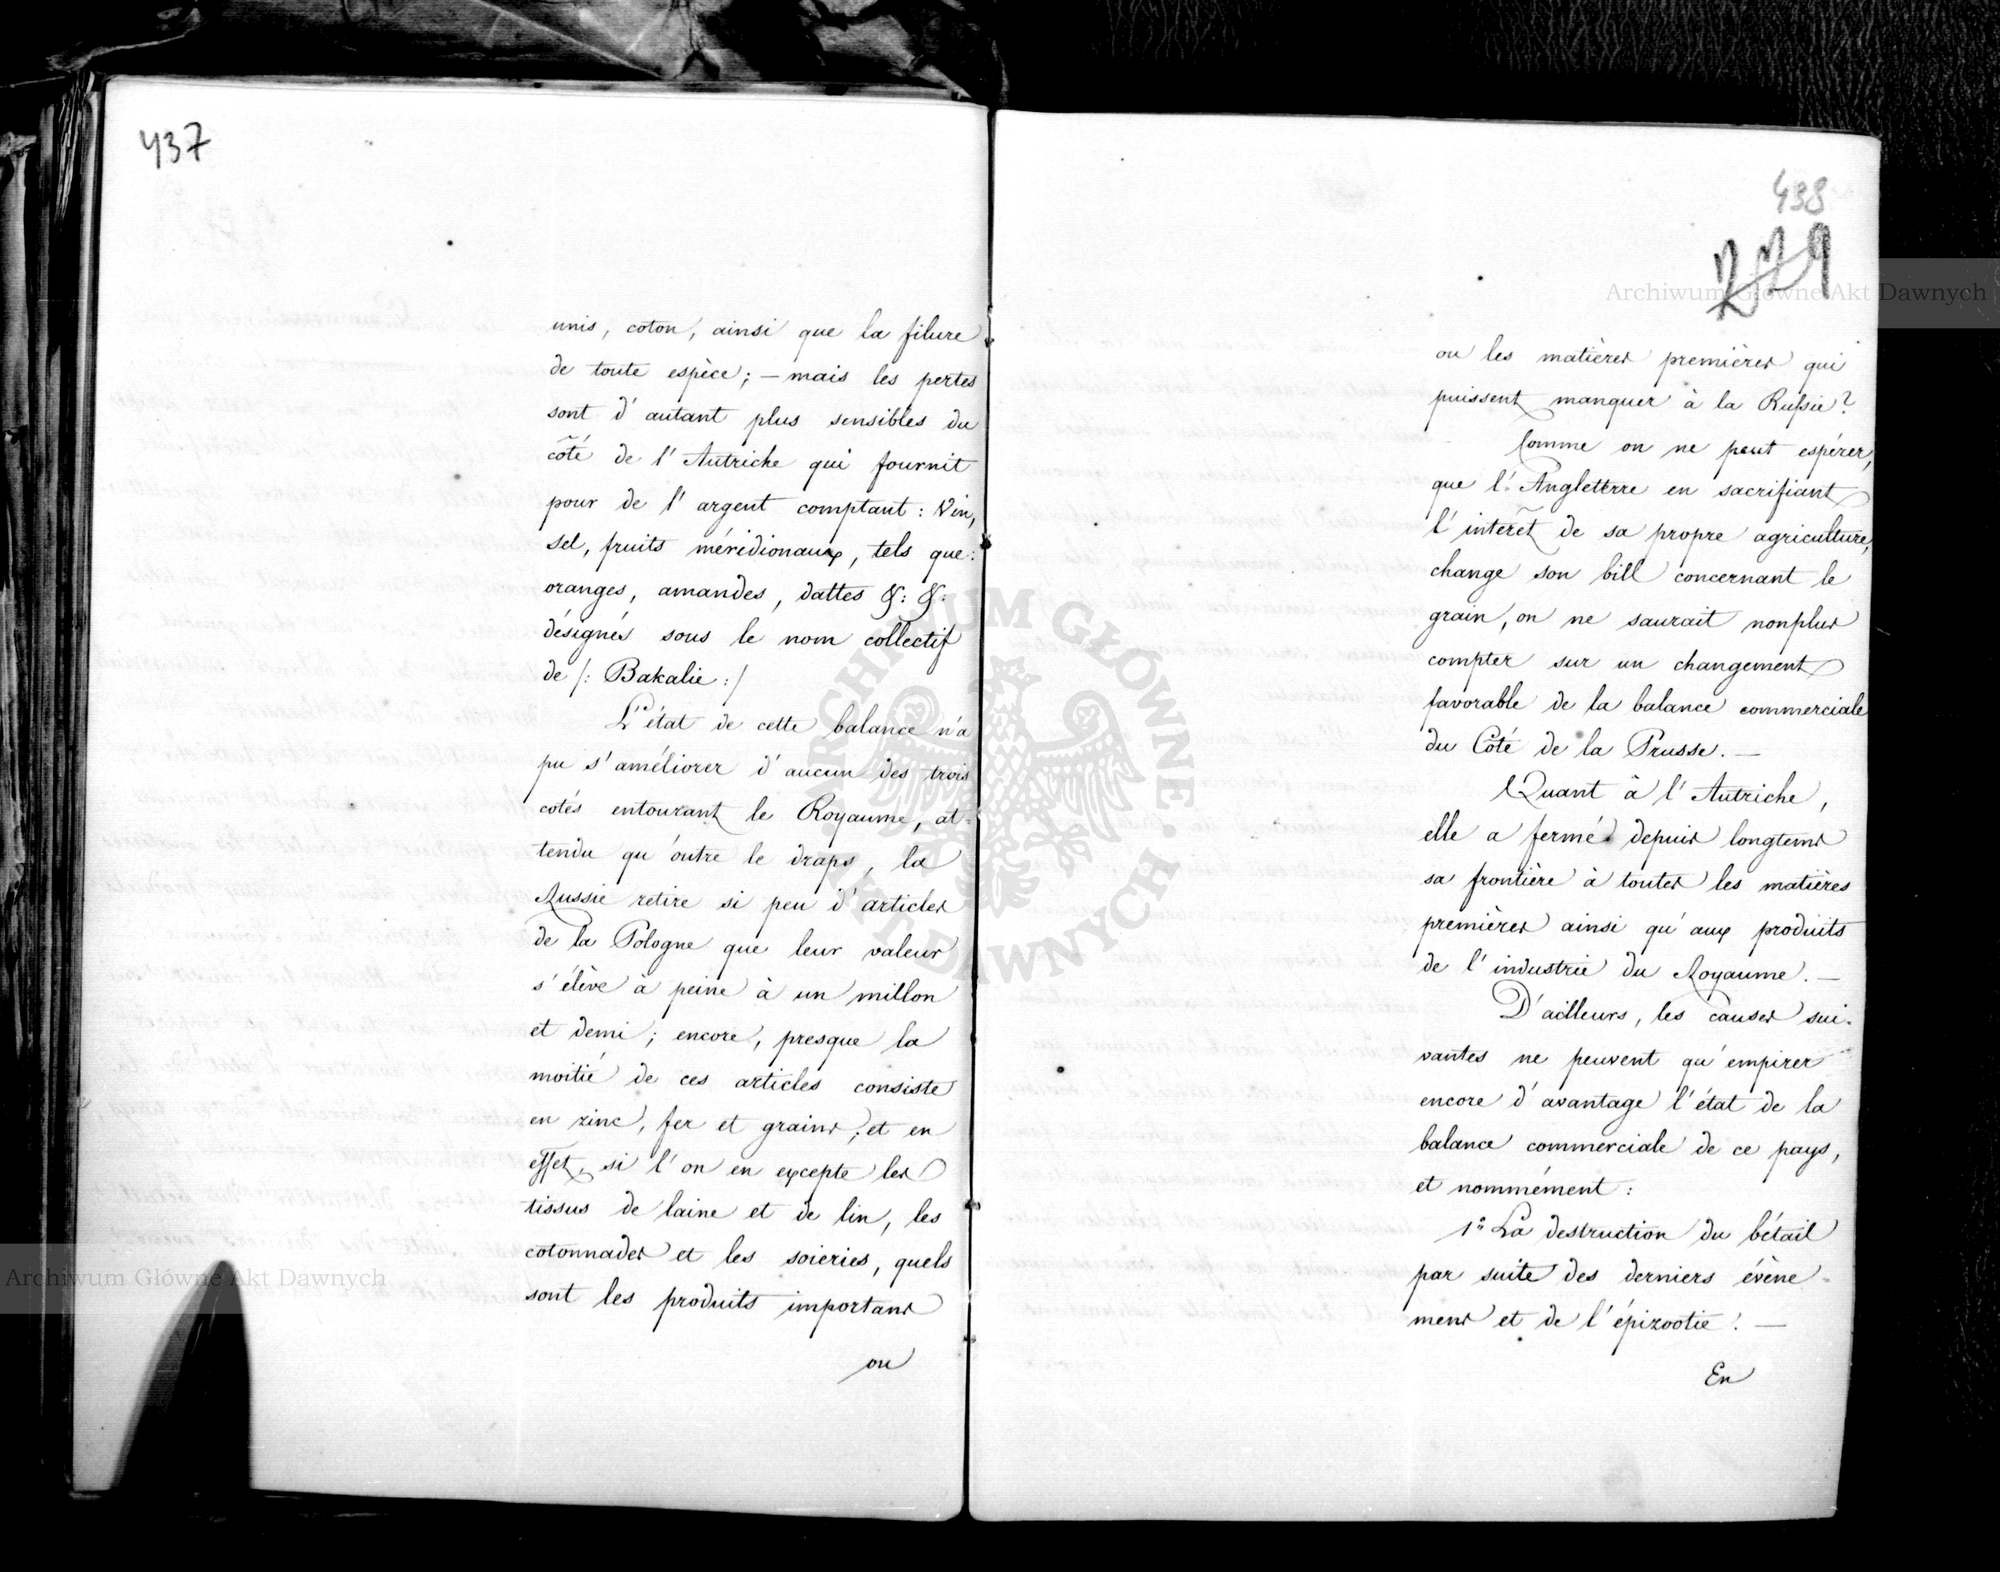 437
unis, coton, ainsi que la filure
de toute espèce; — mais les pertes
sont d'autant plus sensibles du
côté de l'Autriche qui fournit
pour de l'argent comptant: Vin,
sel, fruits méridionaux, tels que:
oranges, amandes, dattes &: &:
désignés sous le nom collectif
de /: Bakalie :/
L'état de cette balance n'a
pu s'améliorer d'aucun des trois
cotés entourant le Royaume, at-
tendu qu'outre le draps, la
Russie retire si peu d'articles
de la Pologne que leur valeur
s'élève à peine à un millon
et demi; encore, presque la
moitié de ces articles consiste
en zinc, fer et grains; et en
effet, si l'on en excepte les
tissus de laine et de lin, les
cotonnades et les soieries, quels
sont les produits importans
ou
438
229
ou les matières premières qui
puissent manquer à la Russie?
Comme on ne peut espérer,
que l'Angletterre en sacrifiant
l'interêt de sa propre agriculture,
change son bill concernant le
grain, on ne saurait nonplus
compter sur un changement
favorable de la balance commerciale
du Côté de la Prusse. —
Quant à l'Autriche,
elle a fermé depuis longtems
sa frontière à toutes les matières
premières ainsi qu'aux produits
de l'industrie du Royaume. —
D'ailleurs, les causes sui-
vantes ne peuvent qu'empirer
encore d'avantage l'état de la
balance commerciale de ce pays,
et nommément:
1° La destruction du bétail
par suite des derniers évène-
mens et de l'épizootie. —
En
Archiwum Główne Akt Dawnych
Archiwum Główne Akt Dawnych
ARCHIWUM GŁÓWNE · AKT DAWNYCH ·